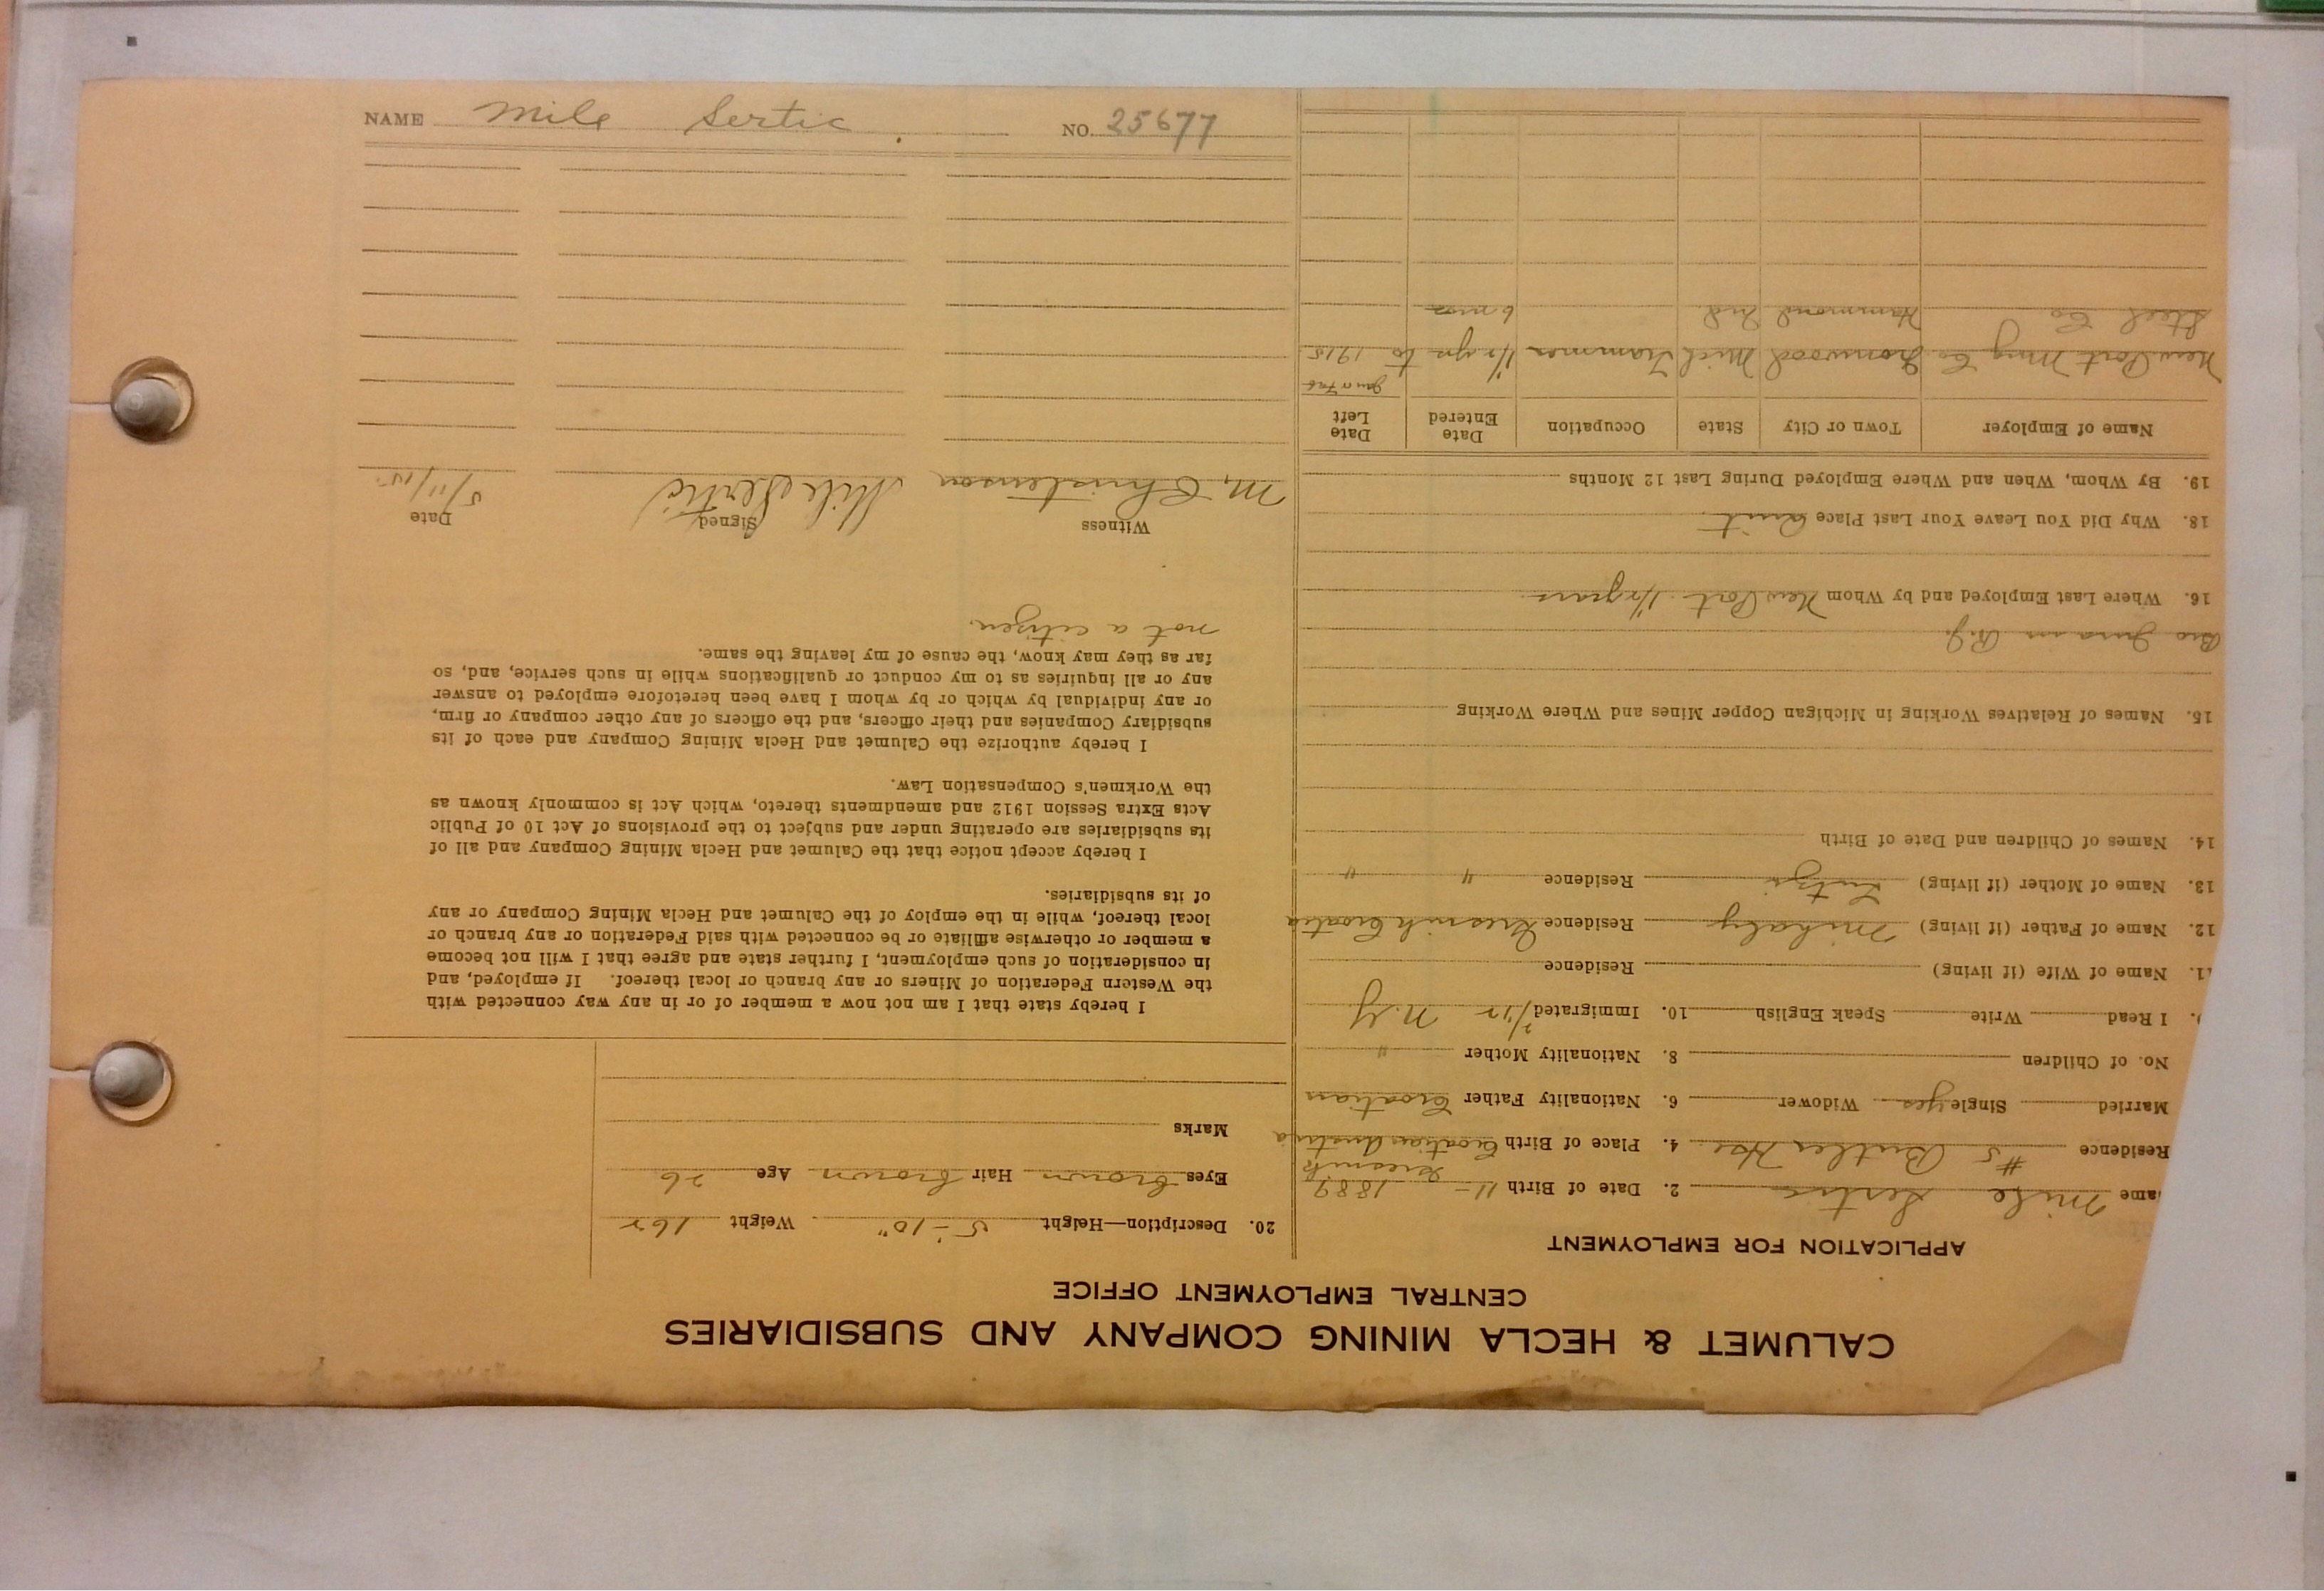 CALUMET & HECLA MINING COMPANY AND SUBSIDIARIES
CENTRAL EMPLOYMENT OFFICE
APPLICATION FOR EMPLOYMENT
ame Mile Sertic 2. Date of Birth 11- 1889
Residence #5 Butler Hse. 4. Place of Birth Croatian Austria
Married Single yes Widower 6. Nationality Father Croatian
No. of Children 8. Nationality Mother "
9. I Read Write Speak English 10. Immigrated N.Y
11. Name of Wife (if living) Residence
12. Name of Father (if living) Mihaly Residence Croatia
13. Name of Mother (if living) Residence " "
14. Names of Children and Date of Birth
15. Names of Relatives Working in Michigan Copper Mines and Where Working
Bro in
16. Where Last Employed and by Whom New Port 1 1/2 years
18. Why Did You Leave Your Last Place Quit.
19. By Whom, When and Where Employed During Last 12 Months
Name of Employer Town or City State Occupation Date Entered Date Left
Jan or Feb
New Port Mng Co. Ironwood Mich Trammer 1 1/2 yrs to 1915
Steel Co Hammond Ind 6 mos
20. Description—Height 5'-10" Weight 162
Eyes brown Hair brown Age 26
Marks
I hereby state that I am not now a member of or in any way connected with
the Western Federation of Miners or any branch or local thereof. If employed, and
in consideration of such employment, I further state and agree that I will not become
a member or otherwise affiliate or be connected with said Federation or any branch or
local thereof, while in the employ of the Calumet and Hecla Mining Company or any
of its subsidiaries.
I hereby accept notice that the Calumet and Hecla Mining Company and all of
its subsidiaries are operating under and subject to the provisions of Act 10 of Public
Acts Extra Session 1912 and amendments thereto, which Act is commonly known as
the Workmen's Compensation Law.
I hereby authorize the Calumet and Hecla Mining Company and each of its
subsidiary Companies and their officers, and the officers of any other company or firm,
or any individual by which or by whom I have been heretofore employed to answer
any or all inquiries as to my conduct or qualifications while in such service, and, so
far as they may know, the cause of my leaving the same.
not a citizen.
Witness Signed Date
M. Christenson Mile Sertić 5/11/15
NAME Mile Sertic NO. 25677